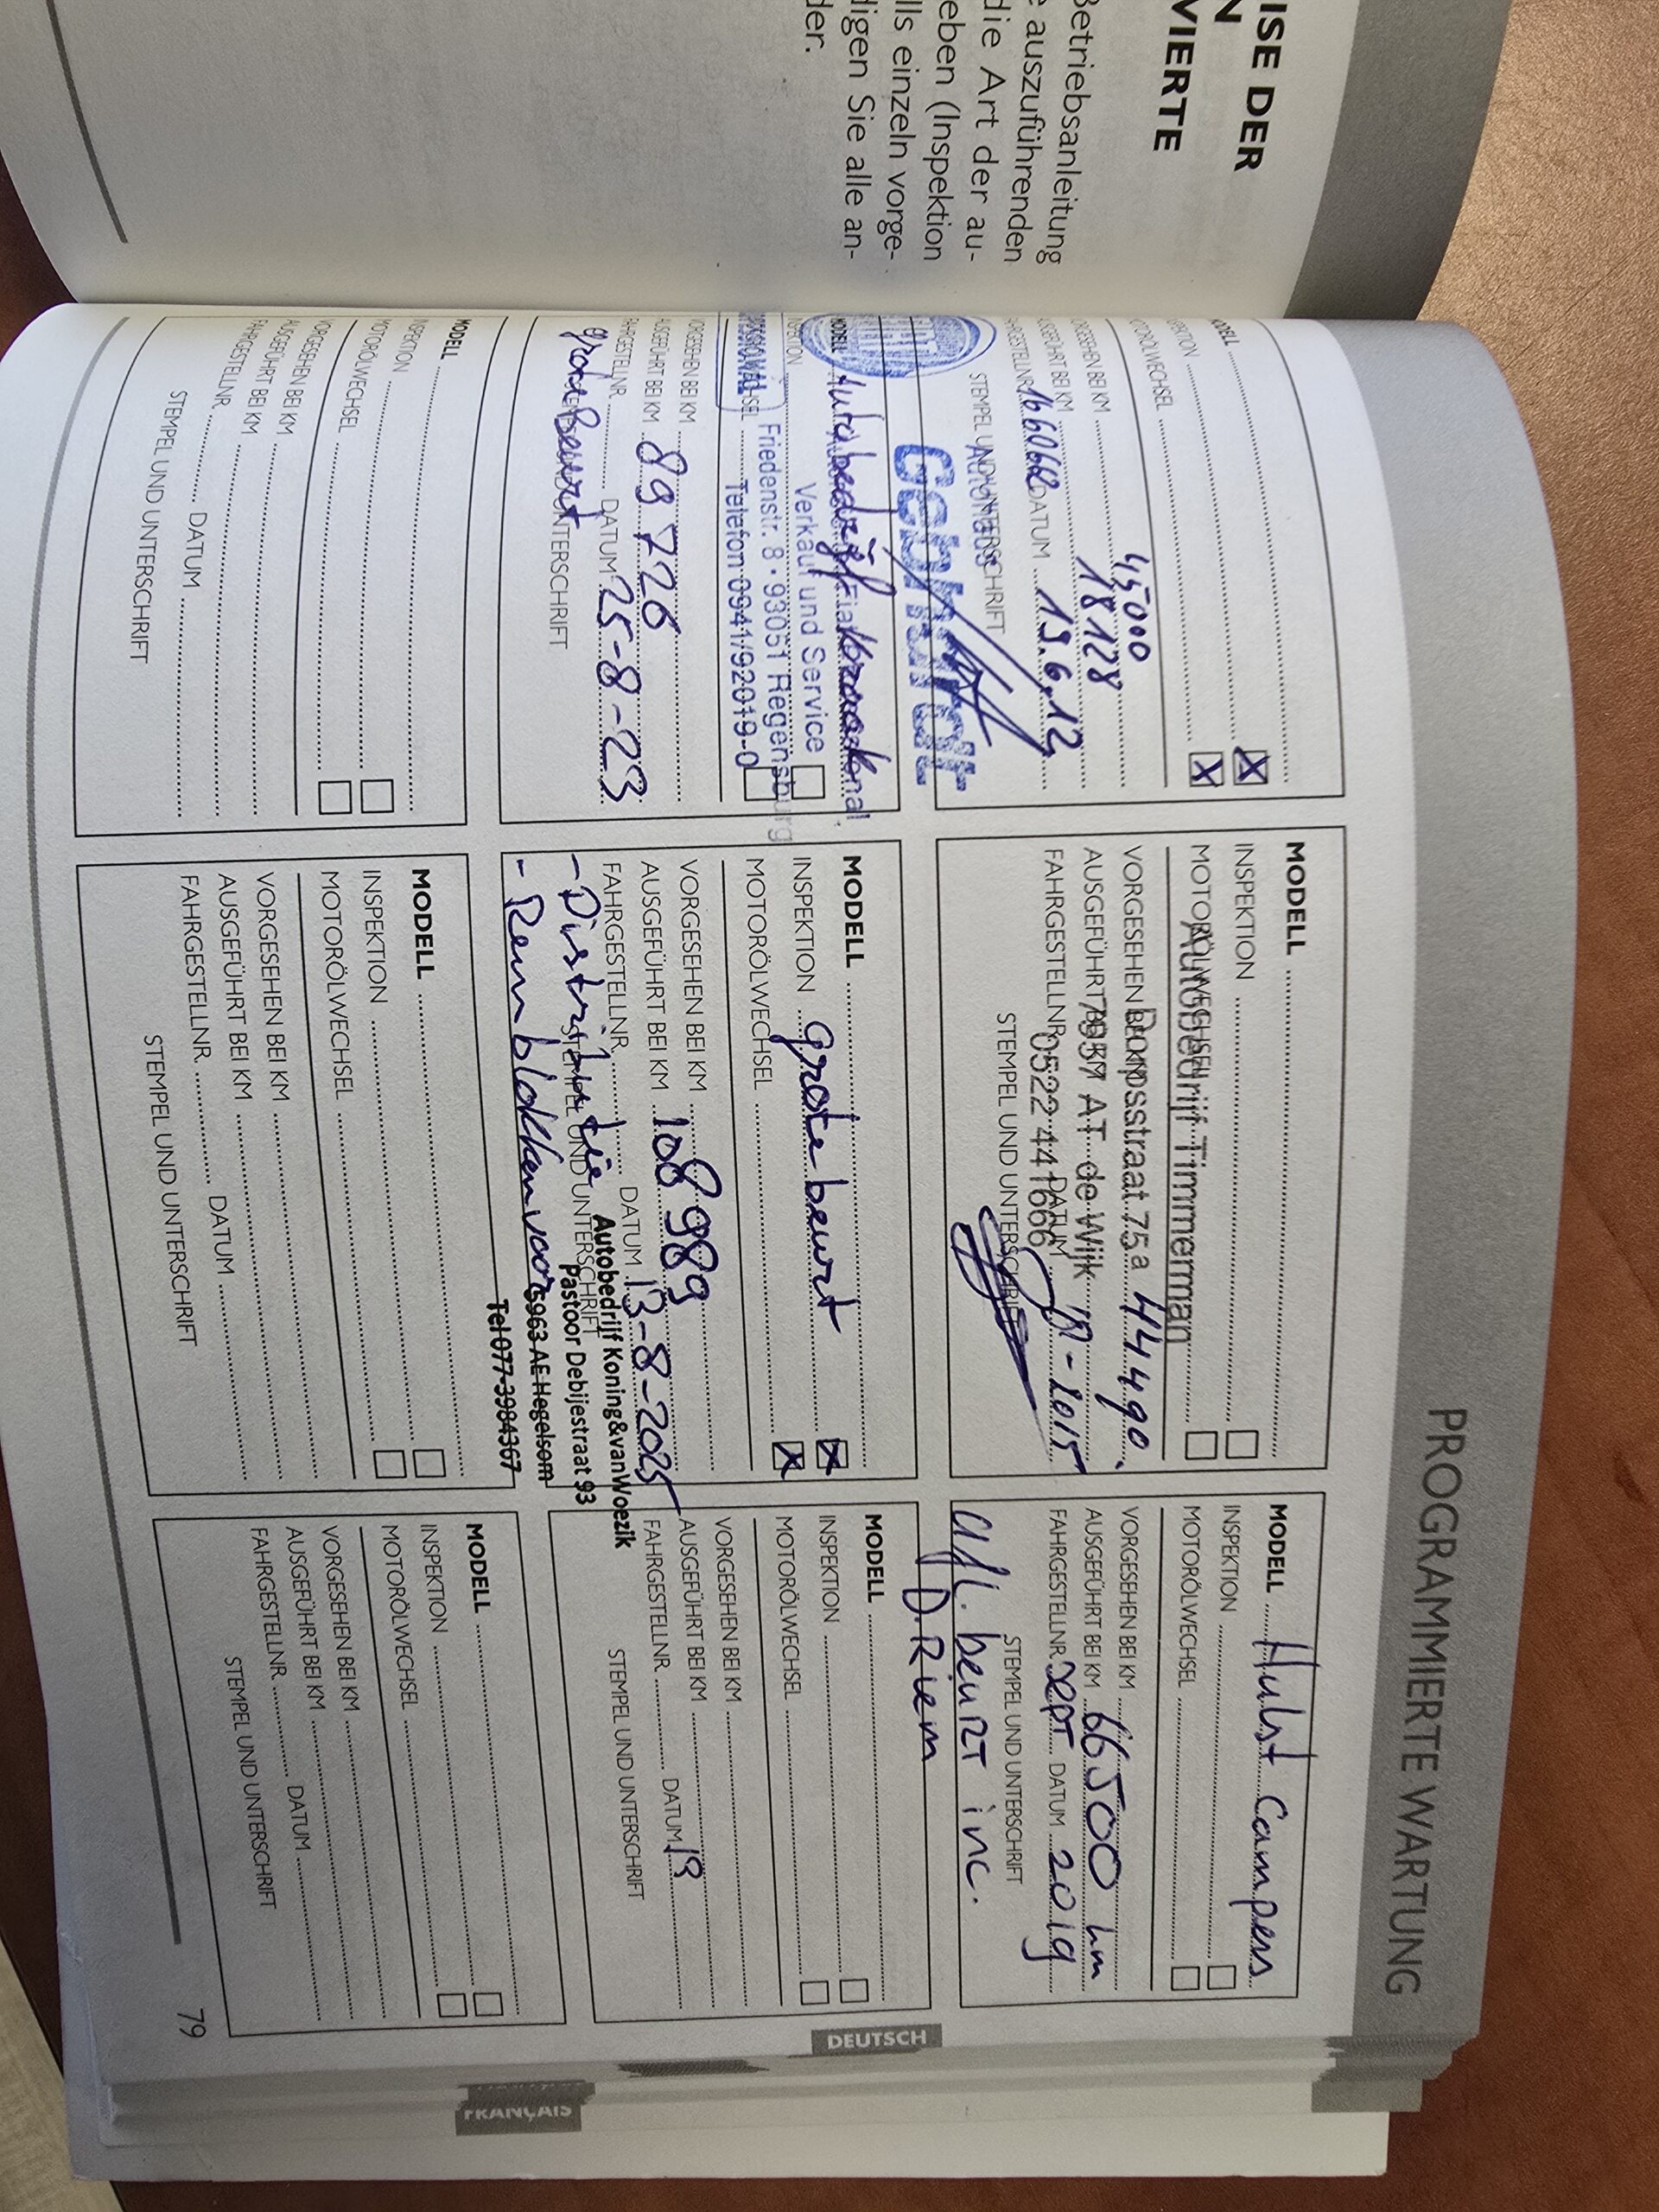 ISE DER
N
VIERTE
Betriebsanleitung
e auszuführenden
die Art der au-
eben (Inspektion
lls einzeln vorge-
digen Sie alle an-
der.
PROGRAMMIERTE WARTUNG
ODELL
EKTION
OROLWECHSEL
GESEHEN BEI KM 45000
GEFÜHRT BEI KM 18128
AHRGESTELLNR. DATUM 19.6.12
STEMPEL UND UNTERSCHRIFT
Autohaus
MODELL
INSPEKTION
MOTORÖLWECHSEL
Autobedrijf Timmerman
VORGESEHEN BEI KM 44490
Dorpsstraat 75a
AUSGEFÜHRT BEI KM
7957 AT de Wijk
FAHRGESTELLNR. DATUM
0522 441666
STEMPEL UND UNTERSCHRIFT
MODELL Hulst Campers
INSPEKTION
MOTORÖLWECHSEL
VORGESEHEN BEI KM
AUSGEFÜHRT BEI KM 66500 km
FAHRGESTELLNR. Sept DATUM 2019
STEMPEL UND UNTERSCHRIFT
afl. beurt inc.
D.Riem
MODELL Autobedrijf
Verkauf und Service
Friedenstr. 8 · 93051 Regensburg
Telefon 0941/92019-0
VORGESEHEN BEI KM
AUSGEFÜHRT BEI KM 89726
FAHRGESTELLNR. DATUM 25-8-23
STEMPEL UND UNTERSCHRIFT
grote Beurt
MODELL
INSPEKTION grote beurt
MOTORÖLWECHSEL
VORGESEHEN BEI KM
AUSGEFÜHRT BEI KM 108989
FAHRGESTELLNR. DATUM 13-8-2025
STEMPEL UND UNTERSCHRIFT
- Distributie
- Remblokken voor
Autobedrijf Koning&vanWoezik
Pastoor Debijestraat 93
5963 AE Hegelsom
Tel 077-3984367
MODELL
INSPEKTION
MOTORÖLWECHSEL
VORGESEHEN BEI KM
AUSGEFÜHRT BEI KM
FAHRGESTELLNR. DATUM 19
STEMPEL UND UNTERSCHRIFT
MODELL
NSPEKTION
MOTORÖLWECHSEL
VORGESEHEN BEI KM
AUSGEFÜHRT BEI KM
FAHRGESTELLNR. DATUM
STEMPEL UND UNTERSCHRIFT
MODELL
INSPEKTION
MOTORÖLWECHSEL
VORGESEHEN BEI KM
AUSGEFÜHRT BEI KM
FAHRGESTELLNR. DATUM
STEMPEL UND UNTERSCHRIFT
MODELL
INSPEKTION
MOTORÖLWECHSEL
VORGESEHEN BEI KM
AUSGEFÜHRT BEI KM
FAHRGESTELLNR. DATUM
STEMPEL UND UNTERSCHRIFT
DEUTSCH
FRANÇAIS
79